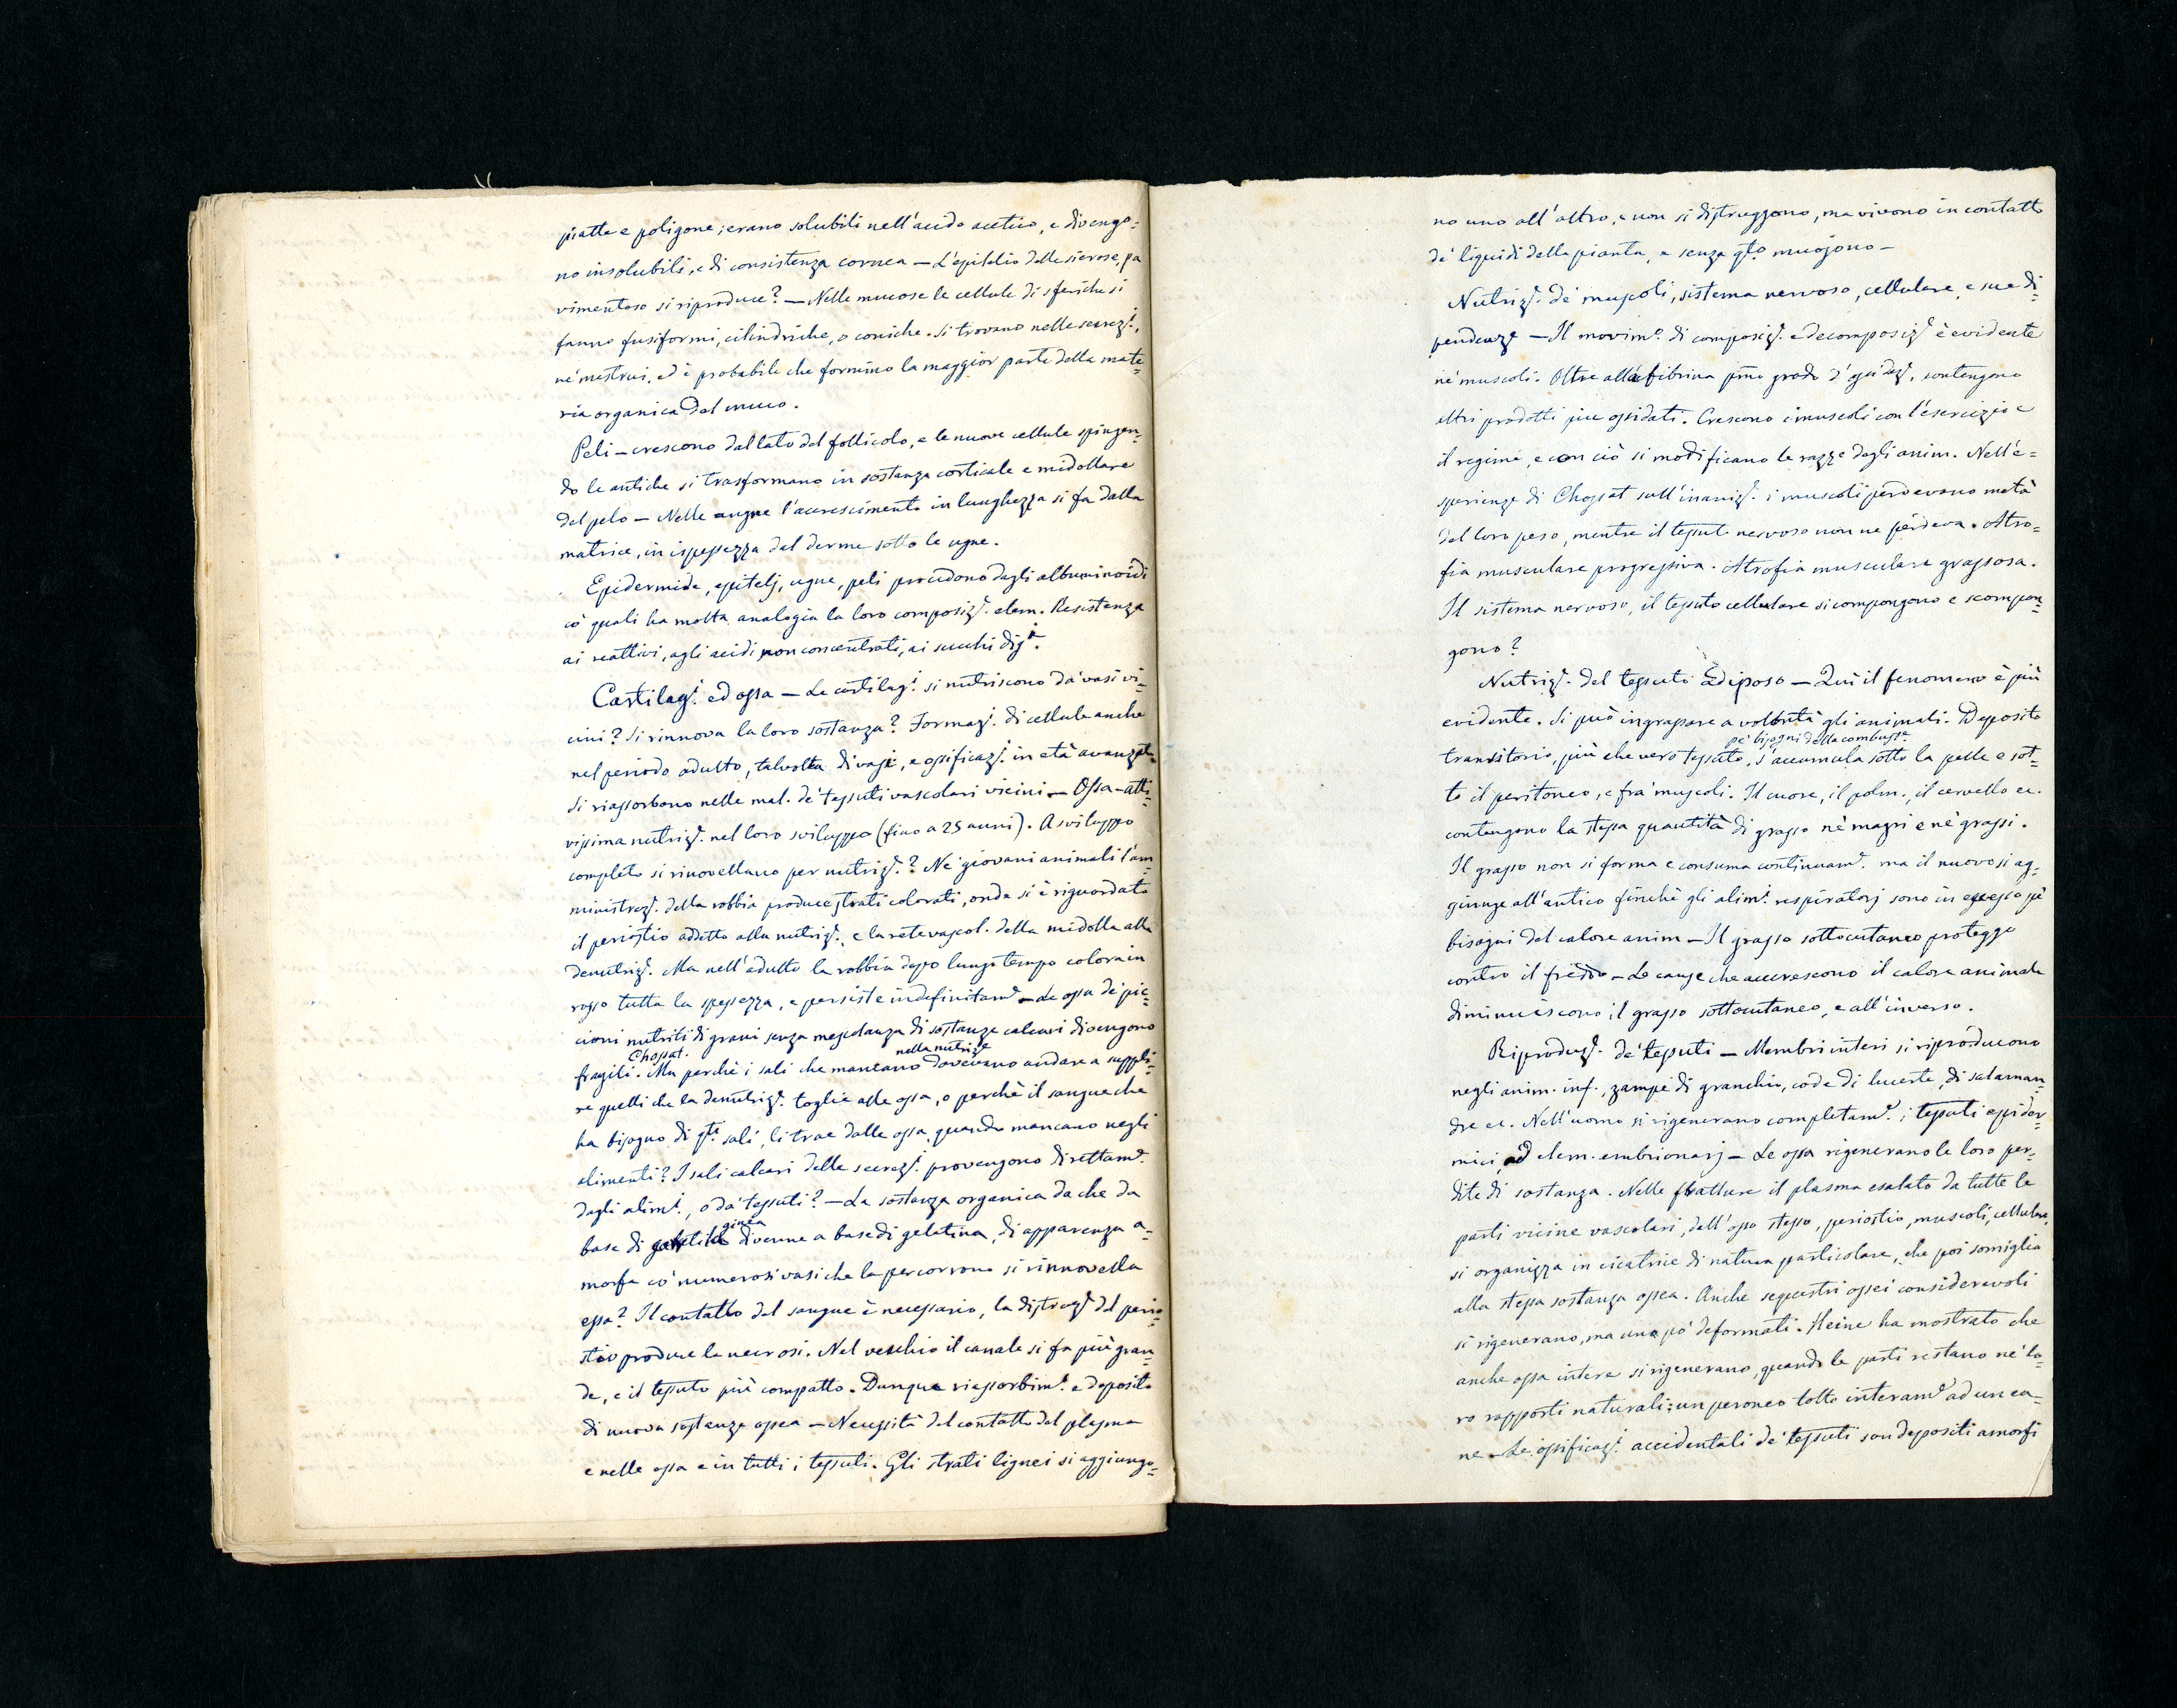 piatte e poligone; erano solubili nell'acido acetico, e divengo=
no insolubili, e di consistenza cornea — L'epitelio delle sierose, pa
vimentoso si riproduce? — Nelle mucose le cellule di sferiche si
fanno fusiformi, cilindriche, o coniche. Si trovano nelle secrezi.,
ne' mestrui, ed è probabile che formino la maggior parte della mate=
ria organica del muco.
Peli — crescono dal lato del follicolo, e le nuove cellule spingen=
do le antiche si trasformano in sostanza corticale e midollare
del pelo — Nelle ugne l'accrescimento in lunghezza si fa dalla
matrice, in ispessezza dal derme sotto le ugne.
Epidermide, epitelj, ugne, peli procedono dagli albuminoidi
co' quali ha molta analogia la loro composize. elem. Resistenza
ai reattivi, agli acidi non concentrati, ai succhi digi.
Cartilagi. ed ossa — Le cartilagi. si nutriscono da' vasi vi=
cini? Si rinnova la loro sostanza? Formaze. di cellule anche
nel periodo adulto, talvolta di vasi, e ossificaze. in età avanzata
Si riassorbono nelle mal. de' tessuti vascolari vicini — Ossa — atti=
vissima nutrize. nel loro sviluppo (fino a 25 anni). A sviluppo
completo si rinovellano per nutrize.? Ne' giovani animali l'am
ministraze. della robbia produce strati colorati, onde si è riguardato
il periostio addetto alla nutrize., e la rete vascol. della midolla alla
denutrize. Ma nell'adulto la robbia dopo lungo tempo colora in
rosso tutta la spessezza, e persiste indefinitame. — Le ossa de' pic=
cioni nutriti di grani senza mescolanza di sostanze calcari divengono
Chossat. nella nutrize
fragili. Ma perchè i sali che mancano dovevano andare a suppli=
re quelli che la denutrize. toglie alle ossa, o perchè il sangue che
ha bisogno di qti. sali, li trae dalle ossa quando mancano negli
alimenti? I sali calcari delle secrezi. provengono direttame.
dagli alimi., o da' tessuti? — La sostanza organica da che da
ginea
base di diviene a base di gelatina, di apparenza a=
morfa co' numerosi vasi che la percorrono si rinnovella
essa? Il contatto del sangue è necessario, la distruze. del perio=
stio produce la necrosi. Nel vecchio il canale si fa più gran=
de, e il tessuto più compatto. Dunque riassorbime. e deposito
di nuova sostanza ossea — Necessità del contatto del plasma
e nelle ossa e in tutti i tessuti. Gli strati lignei si aggiungo=
no uno all'altro, e non si distruggono, ma vivono in contatto
de' liquidi della pianta, e senza qto. muojono —
Nutrize. de' muscoli, sistema nervoso, cellulare, e sue di=
pendenze — Il movimo. di composize. e decomposize è evidente
ne' muscoli. Oltre alla fibrina pmo grado d'ossidaze., contengono
altri prodotti più ossidati. Crescono i muscoli con l'esercizio e
il regime, e con ciò si modificano le razze degli anim. Nell'e=
sperienze di Chossat sull'inanize. i muscoli perdevano metà
del loro peso, mentre il tessuto nervoso non ne perdeva. Atro=
fia musculare progressiva. Atrofia musculare grassosa.
Il sistema nervoso, il tessuto cellulare si compongono e scompon=
gono?
Nutrize. del tessuto Adiposo — Qui il fenomeno è più
evidente. Si può ingrassare a volontà gli animali. Deposito
pe' bisogni della combuste
transitorio, più che vero tessuto, s'accumula sotto la pelle e sot=
to il peritoneo, e fra' muscoli. Il cuore, il polm., il cervello ec.
contengono la stessa quantità di grasso ne' magri e ne' grassi.
Il grasso non si forma e consuma continuame. ma il nuovo si ag=
giunge all'antico finchè gli alimi. respiratorj sono in eccesso pe'
bisogni del calore anim — Il grasso sottocutaneo protegge
contro il freddo — Le cause che accrescono il calore animale
diminuiscono il grasso sottocutaneo, e all'inverso.
Riproduze. de' tessuti — Membri interi si riproducono
negli anim. inf., zampe di granchio, code di lucerte, di salaman=
dre ec. Nell'uomo si rigenerano completame. i tessuti epider=
mici, ad elem. embrionarj — Le ossa rigenerano le loro per=
dite di sostanza. Nelle fratture il plasma esalato da tutte le
parti vicine vascolari, dall'osso stesso, periostio, muscoli, cellulare,
si organizza in cicatrice di natura particolare, che poi somiglia
alla stessa sostanza ossea. Anche sequestri ossei considerevoli
si rigenerano, ma un po' deformati. Heine ha mostrato che
anche ossa intere si rigenerano, quando le parti restano ne' lo=
ro rapporti naturali: un peroneo tolto interame ad un ca=
ne — Le ossificazi. accidentali de' tessuti son depositi amorfi